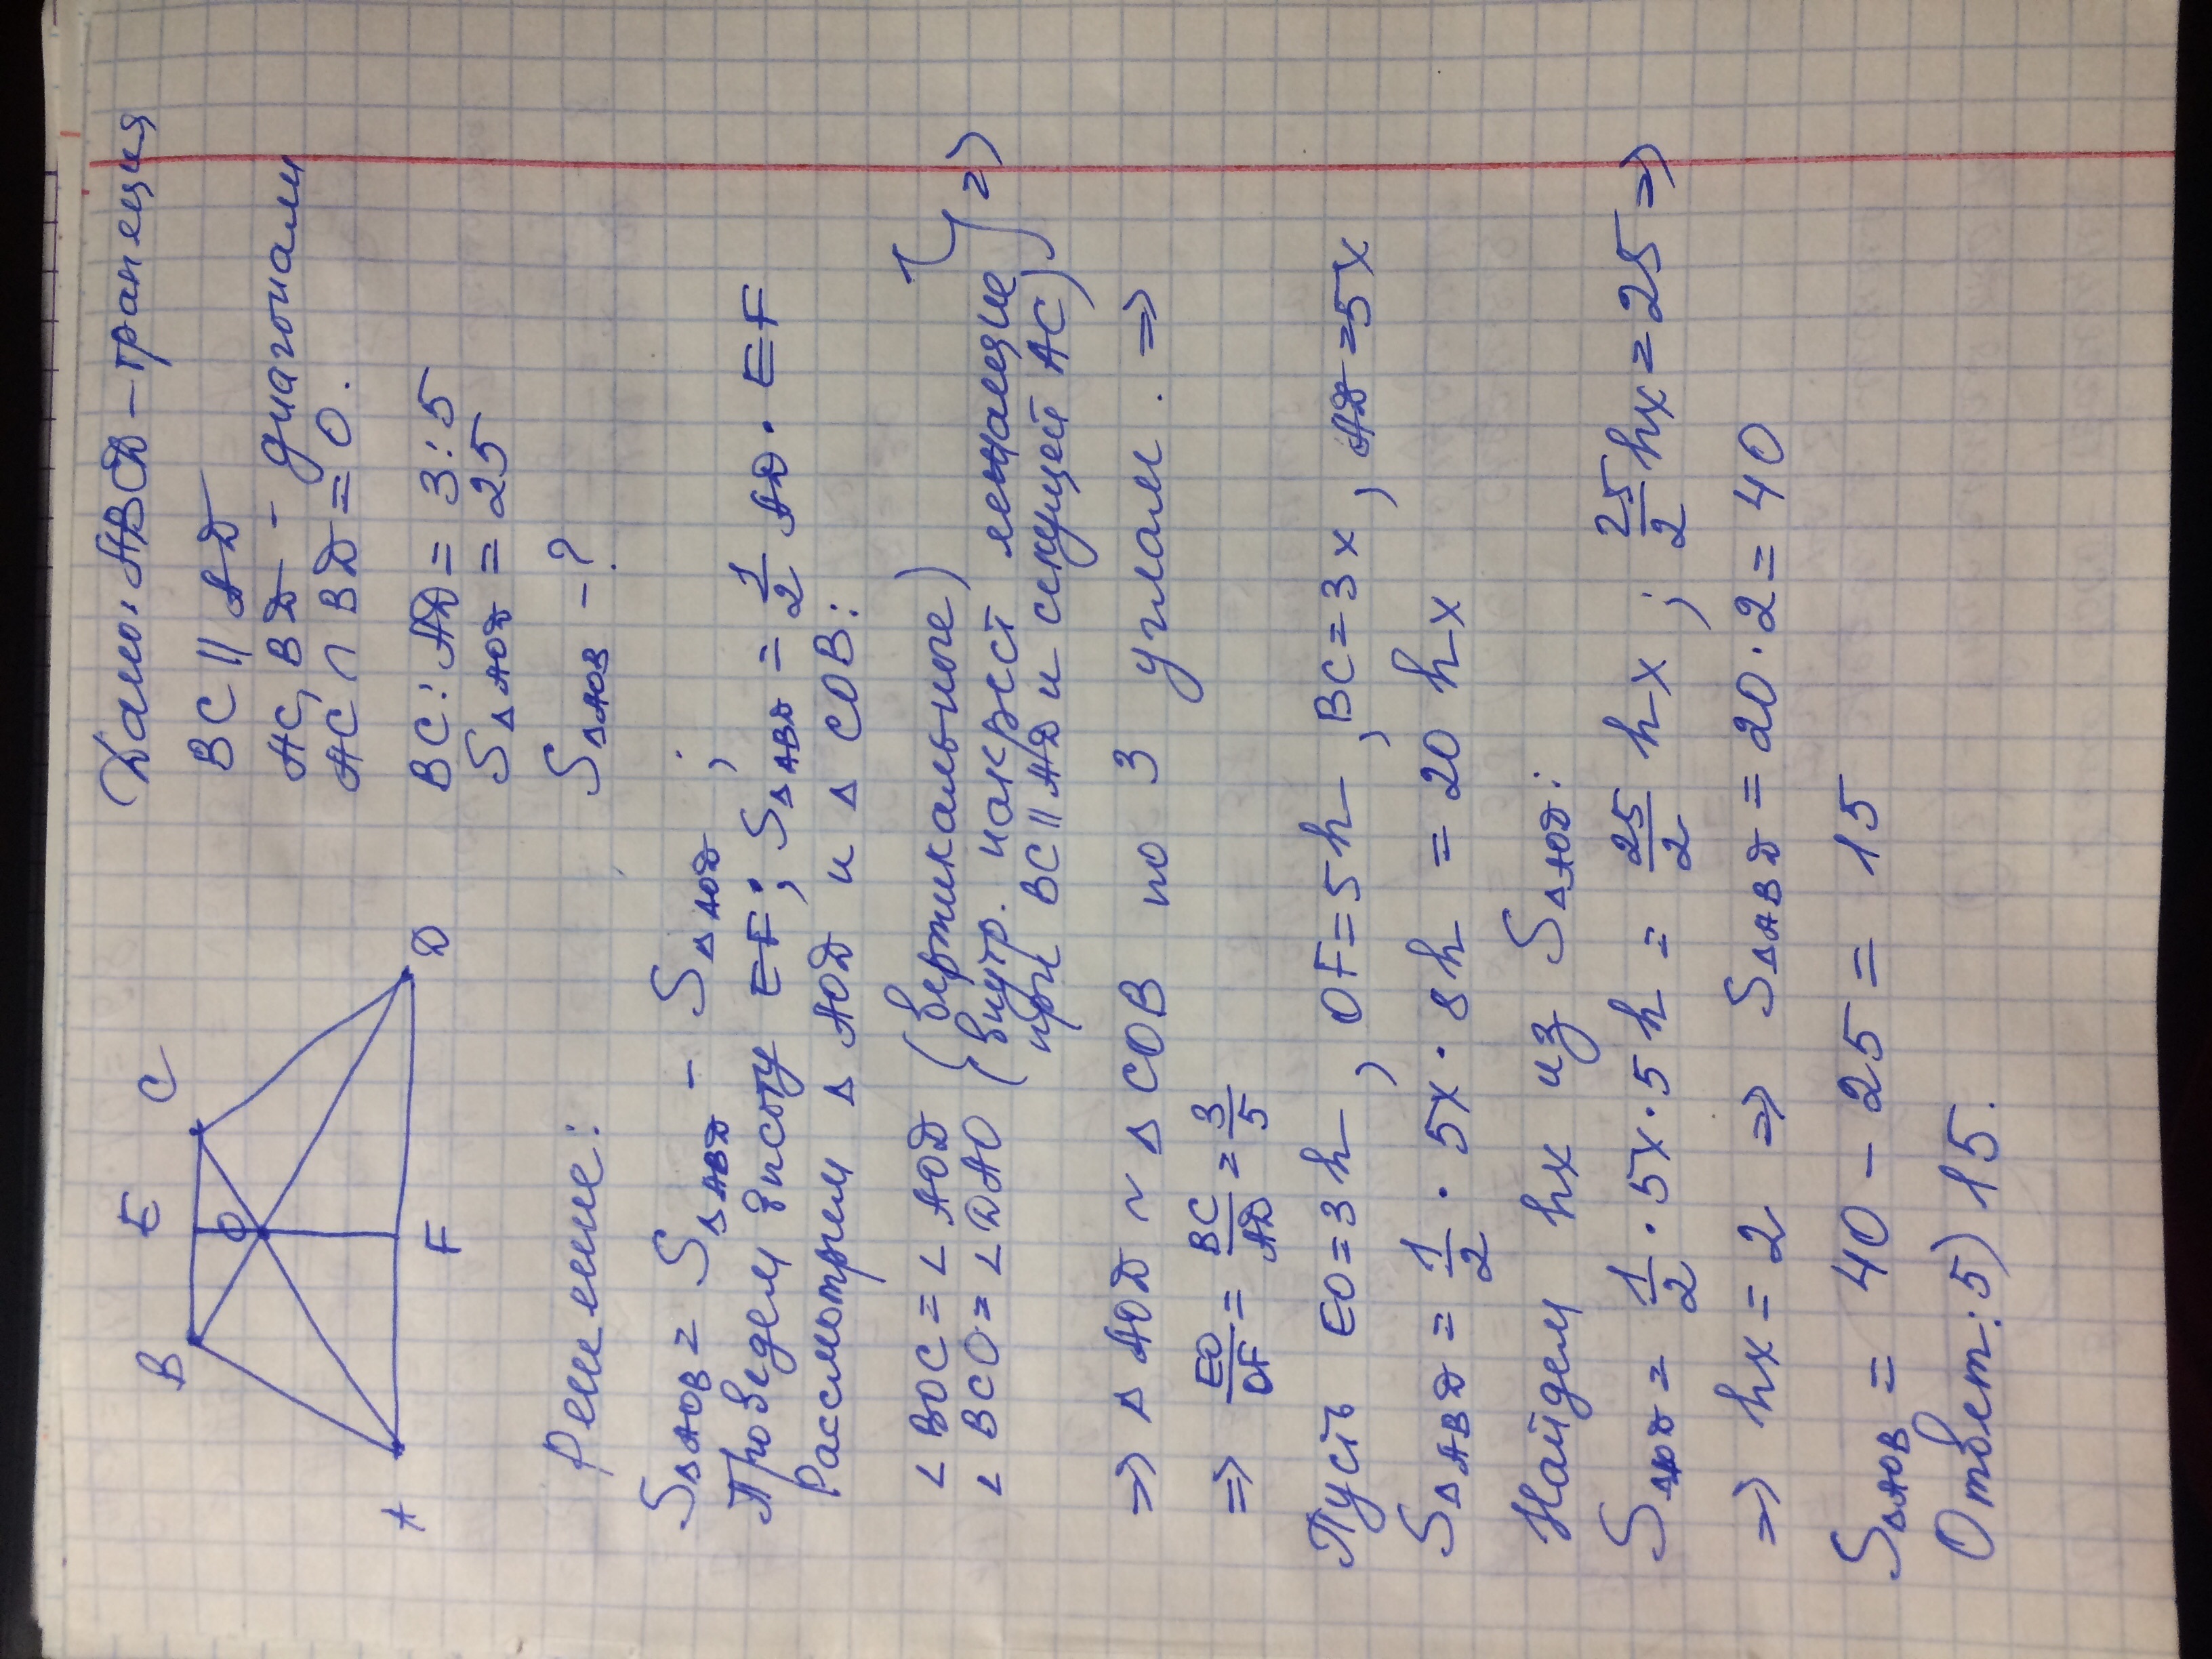 B E C
O
A F D
Дано: ABCD – трапеция
BC || AD
AC, BD – диагонали
AC ∩ BD = O.
BC : AD = 3 : 5
S△AOD = 25
S△AOB – ?
Решение:
S△AOB = S△ABD – S△AOD ;
Проведем высоту EF; S△ABD = 1/2 AD · EF
Рассмотрим △ AOD и △ COB:
∠ BOC = ∠ AOD (вертикальные)
∠ BCO = ∠ DAO (внутр. накрест лежащие
при BC || AD и секущей AC) } ⇒
⇒ △ AOD ~ △ COB по 3 углам. ⇒
⇒ EO/OF = BC/AD = 3/5
Пусть EO = 3h, OF = 5h, BC = 3x, AD = 5x
S△ABD = 1/2 · 5x · 8h = 20 hx
Найдем hx из S△AOD:
S△AOD = 1/2 · 5x · 5h = 25/2 hx ; 25/2 hx = 25 ⇒
⇒ hx = 2 ⇒ S△ABD = 20 · 2 = 40
S△AOB = 40 – 25 = 15
Ответ: 5) 15.